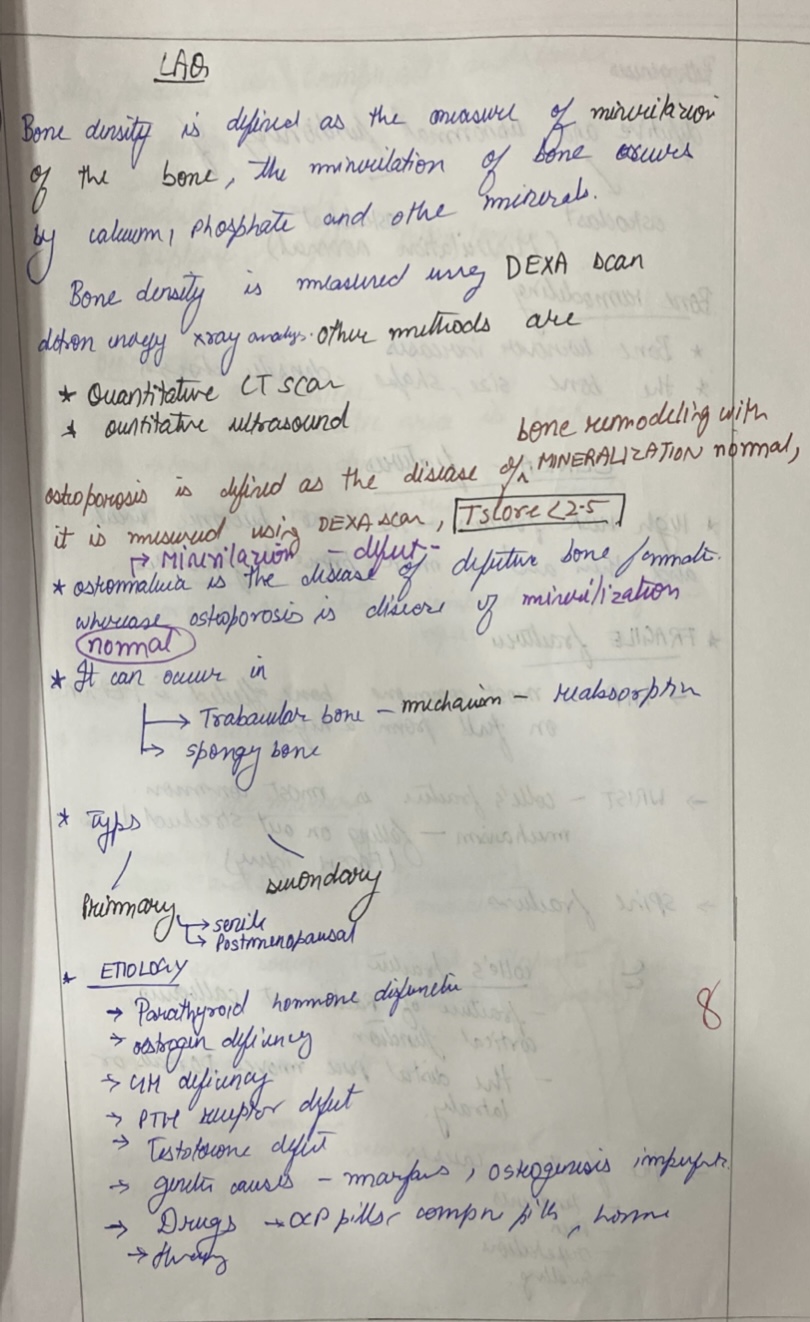 LAQ
Bone density is defined as the measure of minerilazion
of the bone, the minerilation of bone occurs
by calcium, phosphate and othe minerals.
Bone density is measured using DEXA scan
xray analys. other methods are
* Quantitative CT scan
* ountitative ultrasound
bone remodeling with
osteoporosis is defined as the disease of MINERALIZATION normal,
it is mesured using DEXA scan, Tscore < 2.5
→ Minerilazion - defect -
* osteomalacia is the disease of defective bone formati.
wherease osteoporosis is disease of minerilization
normal
* It can occur in
→ Trabacular bone - mechanism - reabsorption
→ spongy bone
* Typs
Primary secondary
→ senile
→ Postmenopausal
* ETIOLOGY
→ Parathyroid hormone disfunctin
→ oestrogin deficincy
→ GH deficincy
→ PTH receptor defect
→ Testosterone defect
→ genetic causes - marfans, osteogenisis imperfecta
→ Drugs → OCP pills, pills, hormone
→ therapy
8